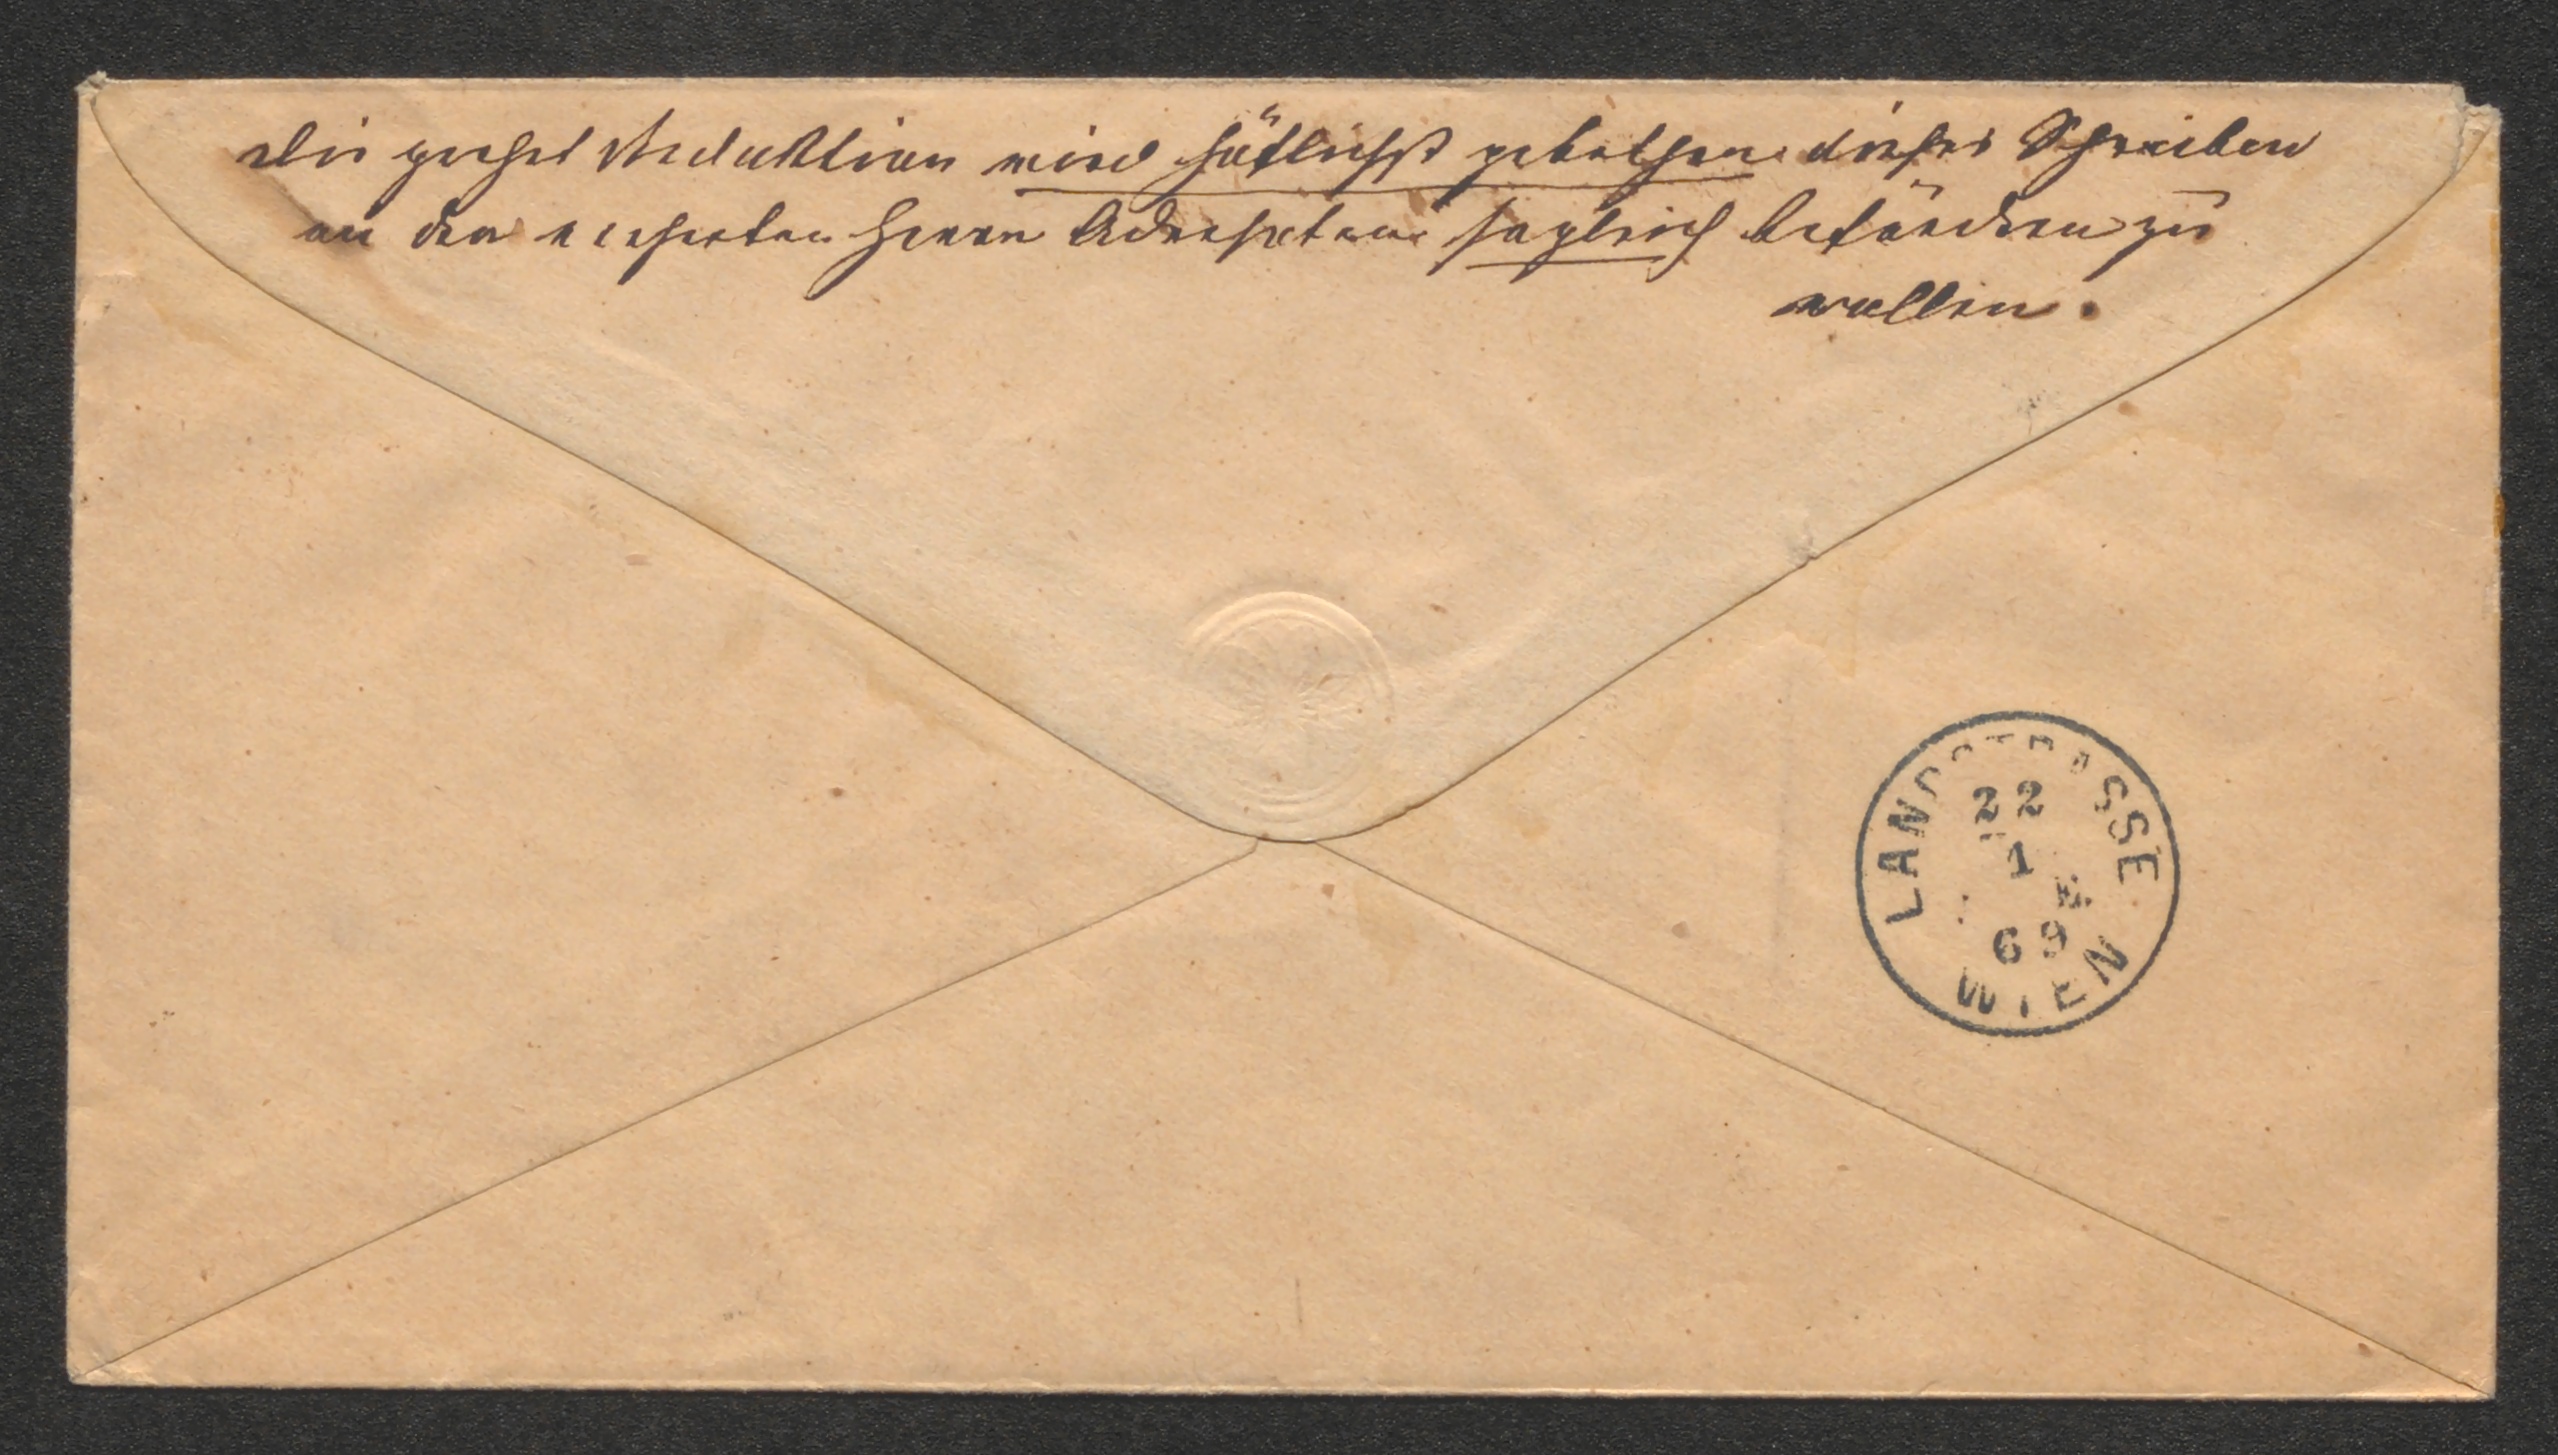 Die geehrte Redaktion wird höflichst gebethen dieses Schreiben
an den verehrten Herrn Adressaten sogleich befördern zu
wollen.
LANDSTRASSE
22
1
69
WIEN